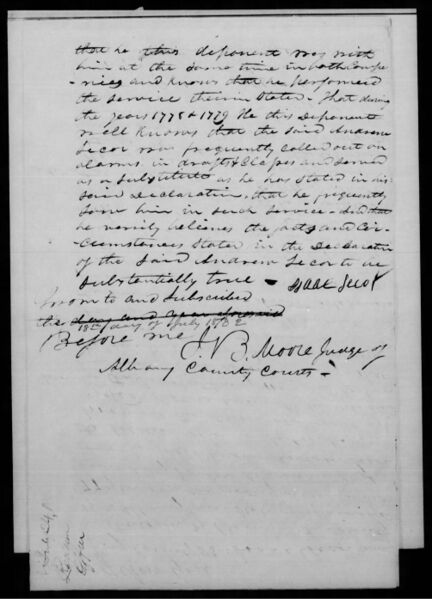 that he this deponent was with
him at the same time in both Compa-
nies and knows that he performed
the service therein stated. That during
the years 1778 & 1779 He this Deponent
well knows that the said Andrew
Secor was frequently called out on
alarms in drafts & Classes and served
as a substitute as he has stated in his
said Declaration, that he frequently
saw him in such service - And that
he verily believes the facts and Cir-
cumstances stated in the Declaration
of the said Andrew Secor to be
substantially true - Isaac Secor
Sworn to and subscribed
the day and year aforesaid
18th day of July 1832
Before me J. B. Moore Judge of
Albany County Courts -